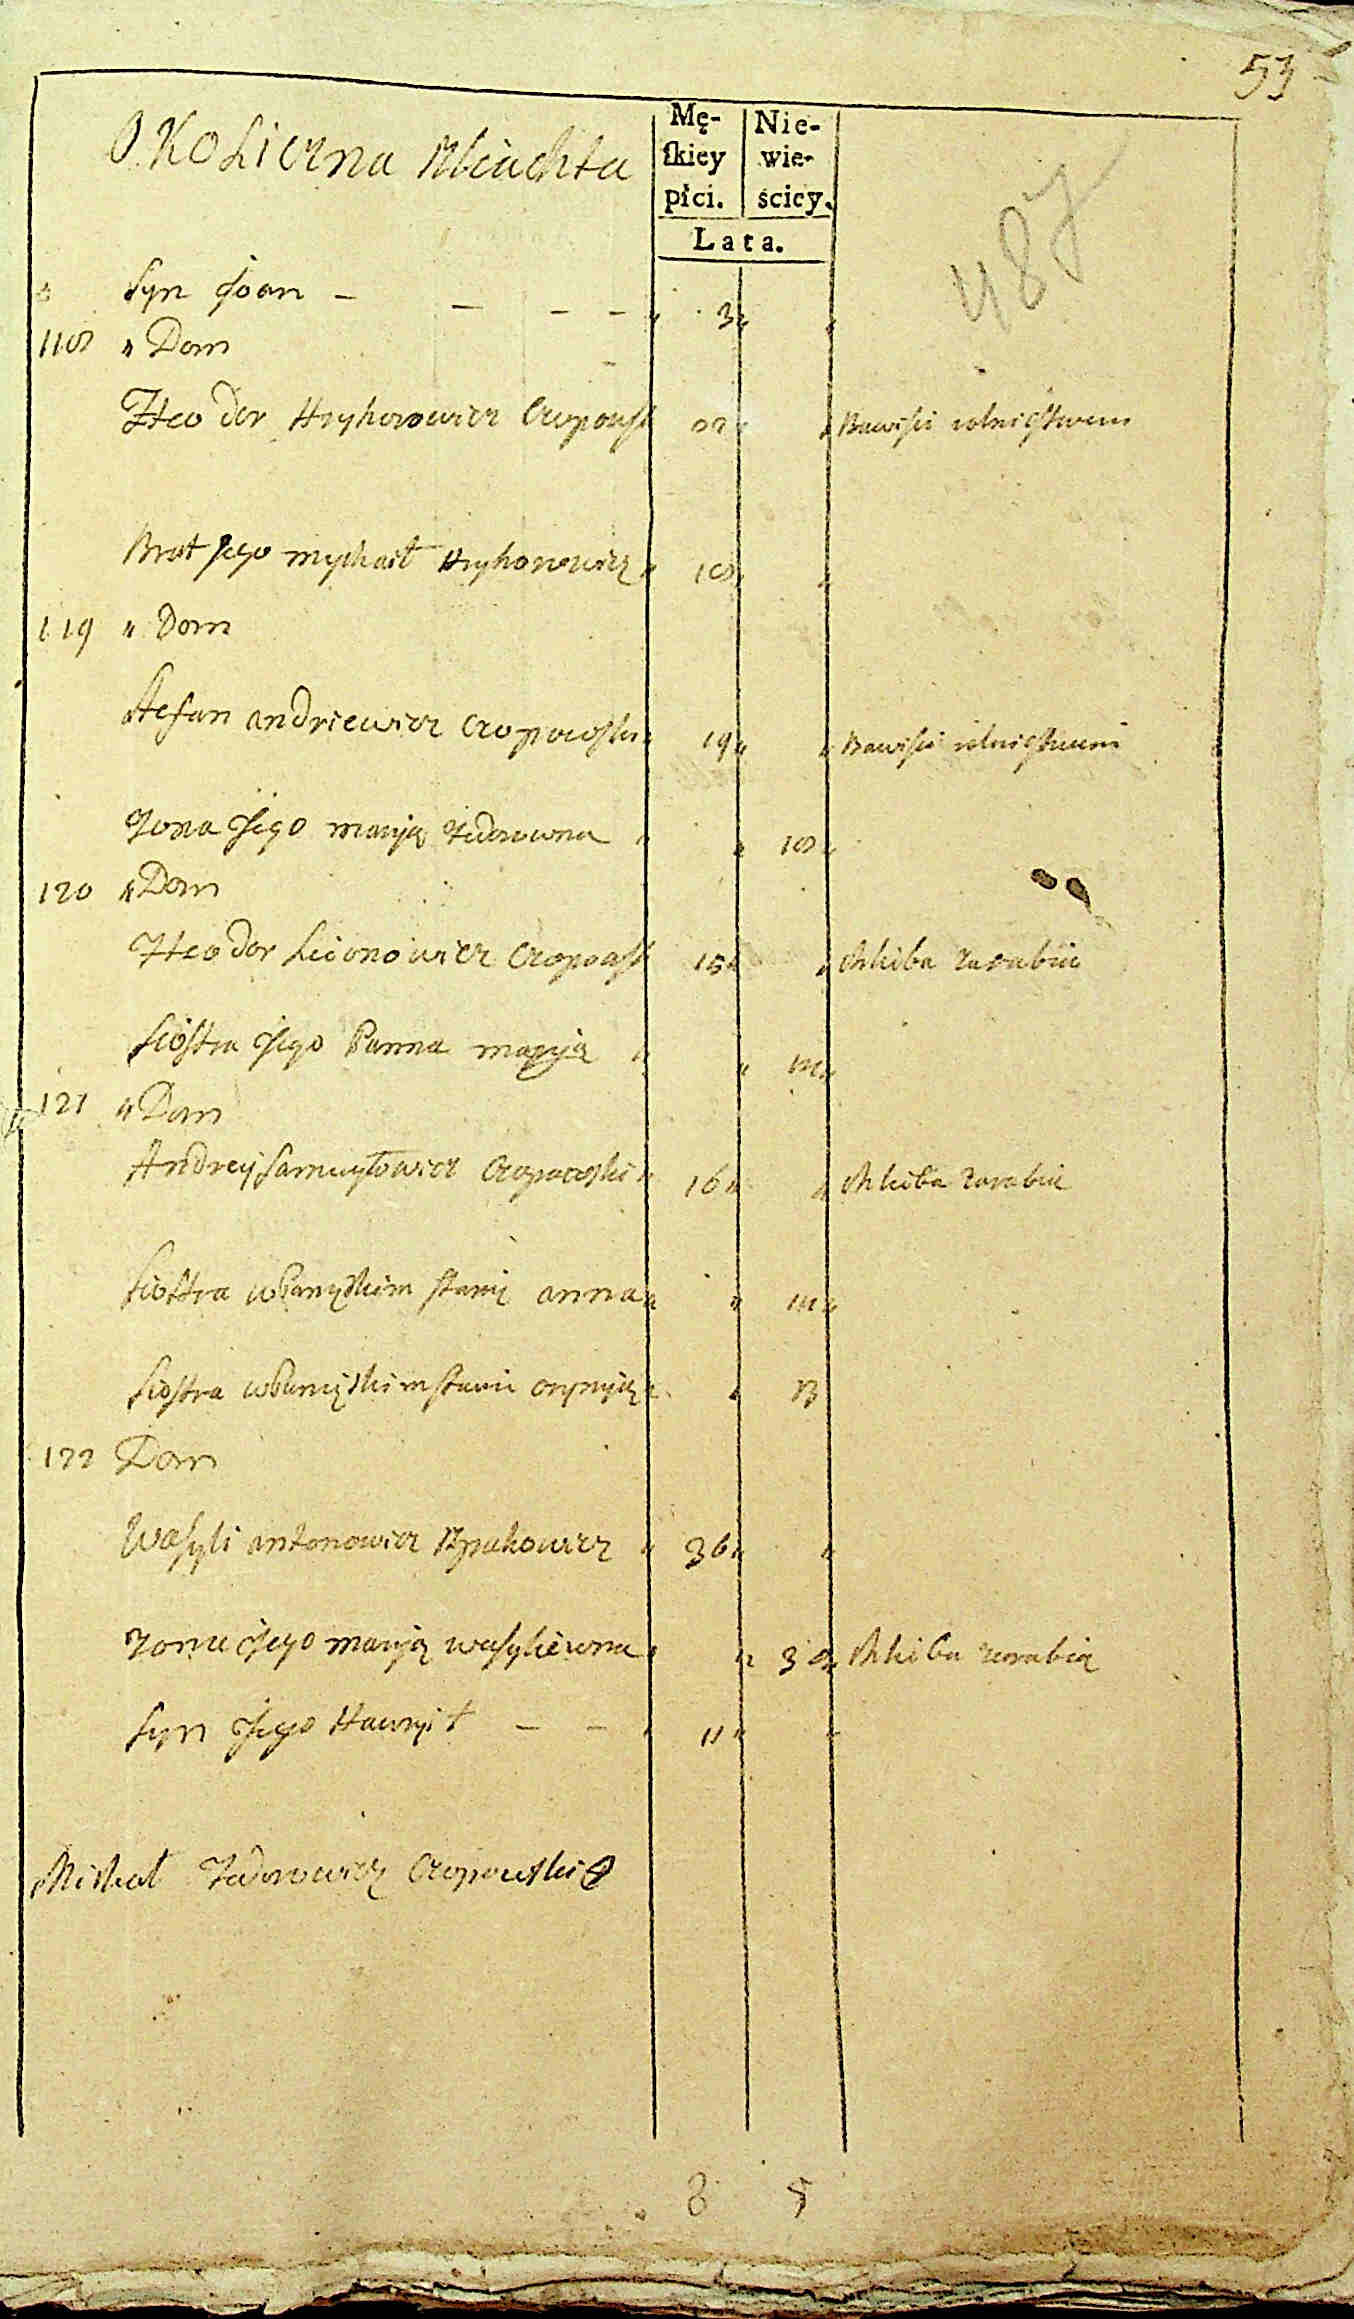 53
487
OKoLiczna szlachta
Mę-
skiey
płci.
Nie-
wie-
ściey.
Lata.
Syn Joan - - - - " 3 " "
118 " Dom
Hteodor Hryhorowicz Czopowsk 22 " " Bawi się rolnictwem
Brat jego mychaił Hryhorowicz " 18 " "
119 " Dom
Stefan andriewicz Czopowski " 19 " " Bawi się rolnictwem
Zona jego maryją Tedorowna " " 18 "
120 " Dom
Hteodor Leonowicz Czopowsk 15 " " Chliba zarabia
Siostra jego Panna maryją " " "
121 " Dom
Andrey Samuyłowicz Czopowski " 16 " " Chliba zarabia
Siostra w Panięskim stanie anna " " "
Siostra w Panięskim stanie " " 13
122 Dom
Wasyli antonowicz " 36 " "
Zona jego maryją wasylewna " " 30 " Chliba zarabia
Syn jego Hawrył - - " 11 " "
Michał Tedorowicz Czopowski
8 5